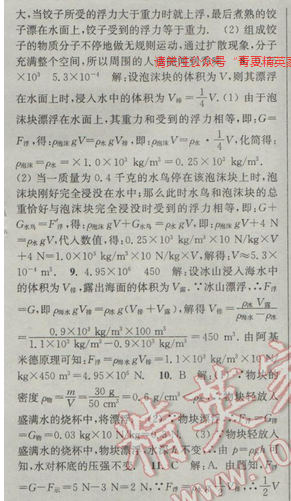 大,当饺子所受的浮力大于重力时就上浮,最后煮熟的饺
子漂在水面上,饺子受到的浮力等于重力. (2)组成饺
子的物质分子不停地做无规则运动,通过扩散现象,分子
充满整个空间,所以周围的人
×10³ 5.3×10⁻⁴ 解:设泡沫块的体积为V,则其漂浮
在水面上时,浸入水中的体积为V排=1/4V. (1)由于泡
沫块漂浮在水面上,其重力和受到的浮力相等,即:G=
F浮,得:ρ泡沫gV=ρ水gV排,即:ρ泡沫V=ρ水·1/4V,化简得:
ρ泡沫=ρ水=×1.0×10³ kg/m³=0.25×10³ kg/m³.
(2)当一质量为0.4千克的水鸟停在该泡沫块上时,泡
沫块刚好完全浸没在水中;那么此时水鸟和泡沫块的总
重恰好与泡沫块完全浸没时受到的浮力相等,即:G+
G水鸟=F′浮,得:ρ泡沫gV+G水鸟=ρ水gV,即:ρ泡沫gV+4 N
=ρ水gV,代入数值,得:0.25×10³ kg/m³×10 N/kg×V
+4 N=1.0×10³ kg/m³×10 N/kg×V,解得:V≈5.3×
10⁻⁴ m³. 9. 4.95×10⁶ 450 解:设冰山浸入海水中
的体积为V排,露出海面的体积为V露,∵冰山漂浮,∴F浮
=G,即ρ海水gV排=ρ冰g(V排+V露),解得V排=ρ冰V露/(ρ海水-ρ冰)
=0.9×10³ kg/m³×100 m³/(1.1×10³ kg/m³-0.9×10³ kg/m³)=450 m³. 由阿基
米德原理可知:F浮=ρ海水gV排=1.1×10³ kg/m³×10 N/
kg×450 m³=4.95×10⁶ N. 10. B 解:(1)∵物块的
密度ρ物=m/V=30 g/50 cm³=0.6 g/cm³ 物块轻放入
盛满水的烧杯中,将漂浮 (2)∵物块漂浮,∴F浮
=G物=0.03 kg×10 N/kg (3)∵物块轻放入
盛满水的烧杯中,物块漂浮,水深h不变,∴由p=ρgh可
知,水对杯底的压强不变. 11. C 解:A. 由题知,F浮
=G-F示=5 N-3 N=2 N,